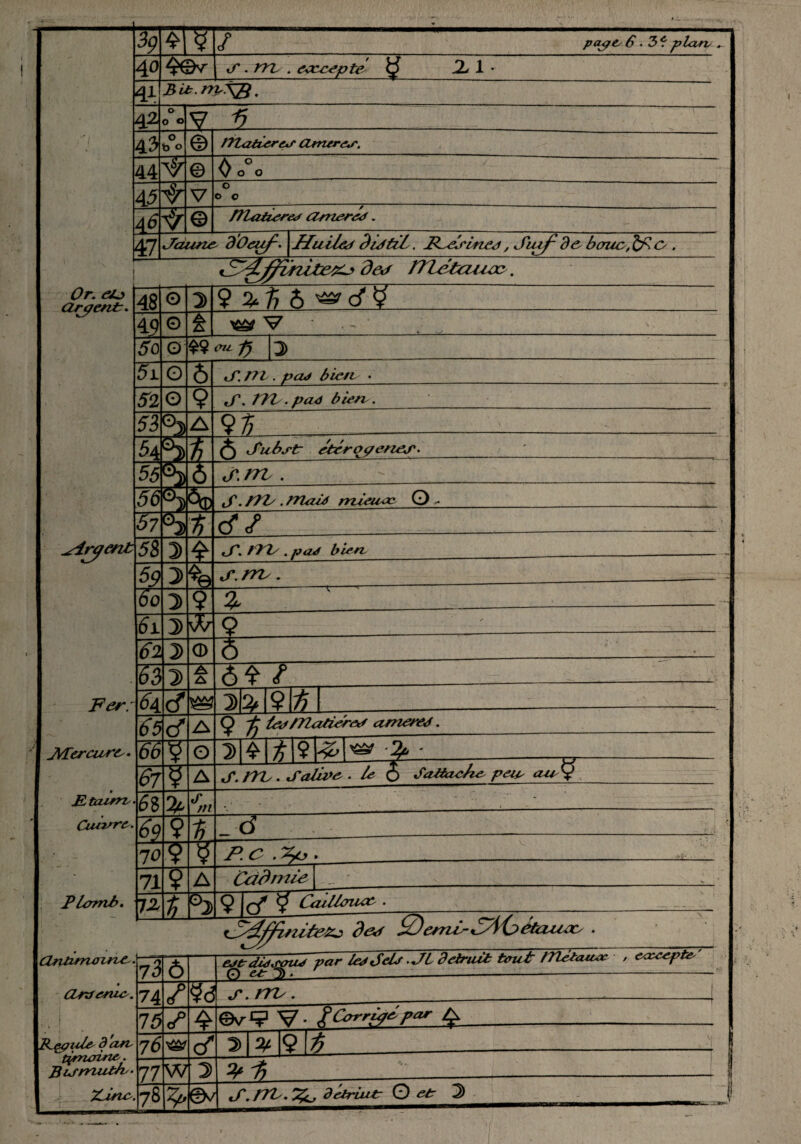 39 🜍 ☿ / page 6 . 3e plan .
40 🜍⊖v s . m . excepte' ☿ ♃ 1 .
41 Bit. m. B .
42 o°o ▽ ♄
43 o°o ⊕ Matieres ameres.
44 ⊖ ◊ o°o
45 ▽ o°o
46 ⊖ Matieres amerés .
47 Jaune d'Oeuf. Huiles distil. Resines, Suif de bouc, &c .
Affinitez des Métaux .
Or. et argent. 48 ☉ ☽ ♀ ♃ ♄ ♁ ♂ ☿
49 ☉ ▽
50 ☉ ou ♄ ☽
51 ☉ ♁ s. m . pas bien .
52 ☉ ♀ s. m . pas bien .
53 ☉☽ △ ♀ ♄
54 ☉☽ ♄ ♁ Subst etérogenes.
55 ☉☽ ♁ s. m .
56 ☉☽ s. m . mais mieux ☉ .
57 ☉☽ ♄ ♂ /
Argent 58 ☽ 🜍 s. m . pas bien
59 ☽ s. m .
60 ☽ ♀ ♃
61 ☽ ♀
62 ☽ ⦶ ♁
63 ☽ ♁ 🜍 /
Fer. 64 ♂ ☽ ♃ ♀ ♄
65 ♂ △ ♀ ♄ les Matières ameres .
Mercure . 66 ☿ ☉ ☽ 🜍 ♄ ♀ ♃ .
67 ☿ △ s. m . salive . le ♁ s'attache peu au ☿
Etaim . 68 ♃ Sm
Cuivre . 69 ♀ ♄ _ ♁
70 ♀ ☿ P. C .
71 ♀ △ Cadmie
Plomb. 72 ♄ ☉☽ ♀ ♂ ☿ Cailloux .
Affinitez des Demi-Métaux .
Antimoine . 73 ♁ est dissous par les Sels . Il detruit tout Métaux , excepte' ☉ et ☽ .
Arsenic . 74 s. m .
75 🜍 ⊖v ▽ . Corrigé par
Regule d'antimoine . 76 ♂ ☽ ♃ ♀ ♄
Bismuth . 77 W ☽ ♃ ♄
Zinc. 78 ⊖v s. m. detriut ☉ et ☽